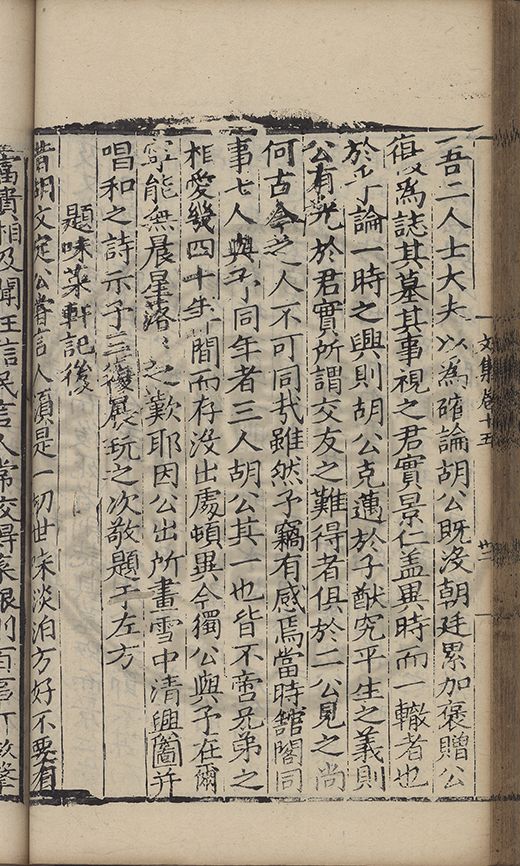 吾二人士大夫以爲確論胡公旣沒朝廷累加褒贈公
復爲誌其墓其事視之君實景仁盖異時而一轍者也
於乎論一時之興則胡公克邁於子猷究平生之義則
公有光於君實所謂交友之難得者俱於二公見之尚
何古今之人不可同㦲雖然予竊有感焉當時舘閣同
事七人與予同年者三人胡公其一也皆不啻兄弟之
相愛幾四十年間而存沒出處頓異今獨公與予在爾
寧能無晨星落〻之歎耶因公出所畫雪中清興圖并
唱和之詩示予三復展玩之次敬題于左方
題味菜軒記後
昔胡文定公嘗言人須是一切世味淡泊方好不要有
富貴相及聞汪信民言人常咬得菜根則百事可做擊
文集卷十五